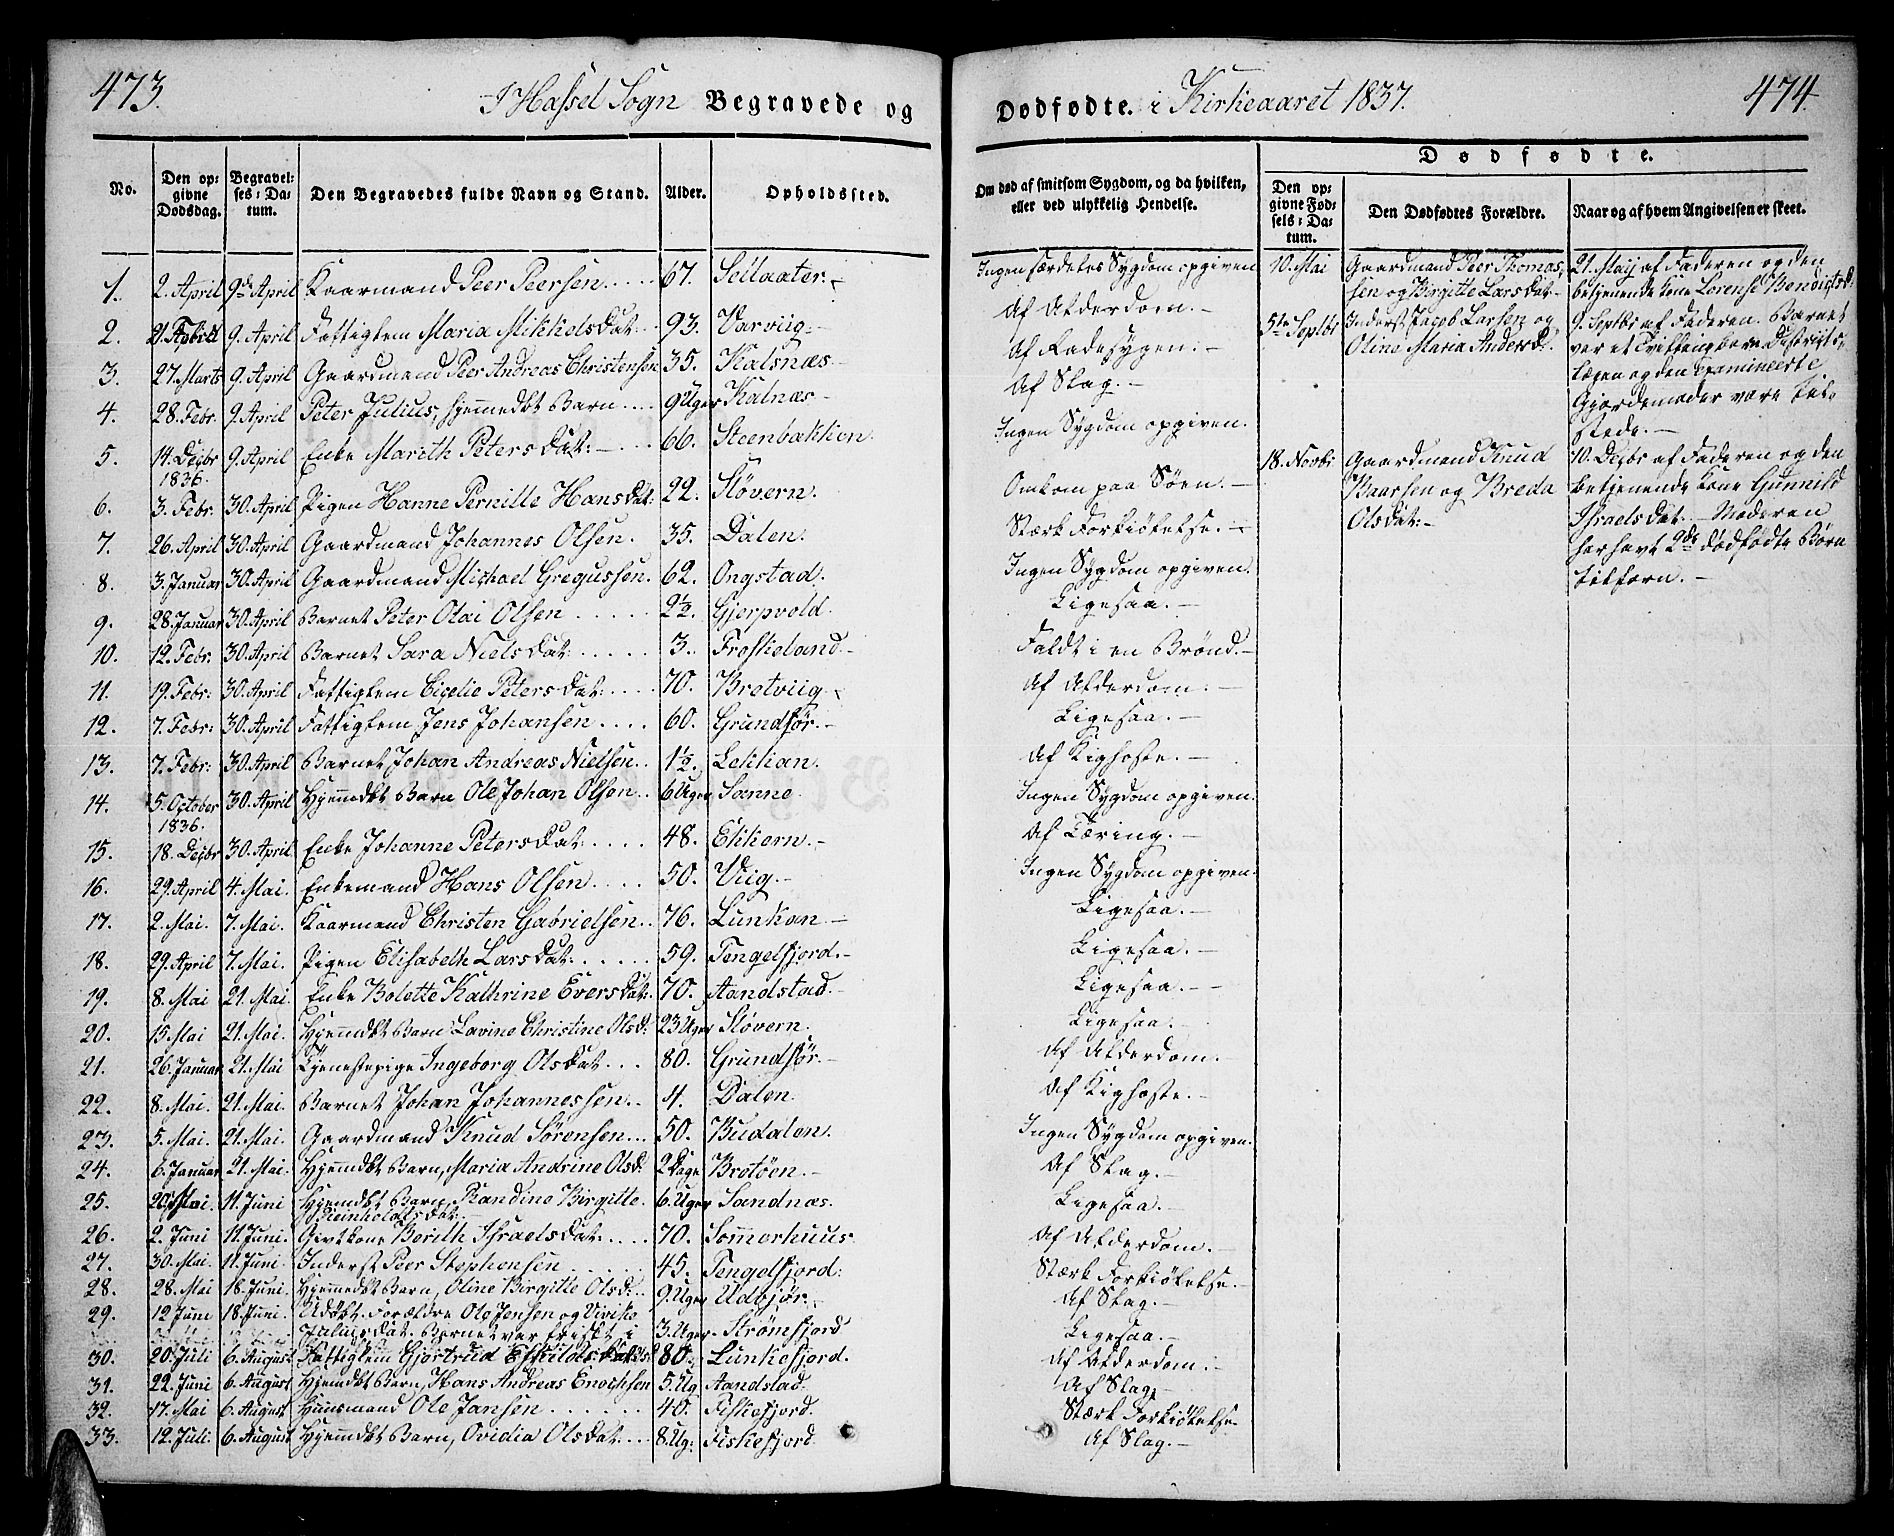 473.
I Hassel Sogn Begravede og
Dødfødte. i Kirkeaaret 1837.
474
No.
Den op=
givne
Dødsdag.
Begravel=
ses=Da=
tum.
Den Begravedes fulde Navn og Stand.
Alder.
Opholdssted.
Om død af smitsom Sygdom, og da hvilken,
eller ved ulykkelig Hendelse.
Dødfødte.
Den op=
givne Fød=
sels=Da=
tum.
Den Dødfødtes Forældre.
Naar og af hvem Angivelsen er skeet.
1. 2. April 9de April Kaarmand Peer Peersen 67. Sellaater. Ingen særdeles Sygdom opgiven
2. 9. April Fattiglem Maria Mikkelsdat: 93. Varviig. Af Alderdom.
3. 27. Marts 9. April Gaardmand Peer Andreas Christensen 35. Kalsnæs Af Radesygen.
4. 28. Febr. 9. April Peter Julius, hjemmedøbt Barn 9 Uger Kalnæs Af Slag.
5. 14. Decbr 9. April Enke Marith Petersdat: 66. Steenbakken. Ingen Sygdom opgiven.
1836.
6. 3. Febr. 30. April Pigen Hanne Pernille Hansdat: 22. Støvern. Omkom paa Søen.
7. 26. April 30. April Gaardmand Johannes Olsen. 35. Dalen. Stærk Forkiølelse.
8. 3. Januar 30. April Gaardmand Michael Gregussen. 62. Ongstad. Ingen Sygdom opgiven.
9. 28. Januar 30. April Barnet Peter Olai Olsen 2½. Gjerpvold. Ligesaa.
10. 12. Febr. 30. April Barnet Sara Nielsdat: 3. Froskeland. Faldt i en Brønd.
11. 19. Febr: 30. April Fattiglem Cicelie Petersdat: 70. Bretviig. Af Alderdom.
12. 7. Febr: 30. April Fattiglem Jens Johansen 60. Grundfør. Ligesaa.
13. 7. Febr: 30. April Barnet Johan Andreas Nielsen. 1½. Lekkan. Af Kighoste.
14. 5. October 30. April Hjemmedøbt Barn Ole Johan Olsen 6 Uger Sanne. Ingen Sygdom opgiven.
1836.
15. 18. Decbr 30. April Enke Johanne Petersdat: 48. Ekkern. Af Tæring.
16. 29. April 4. Mai. Enkemand Hans Olsen 50. Viig. Ingen Sygdom opgiven.
17. 2. Mai. 7. Mai. Kaarmand Christen Gabrielsen 76. Lunkan Ligesaa.
18. 29. April 7. Mai. Pigen Elisabeth Larsdat: 59. Tengelfjord. Ligesaa.
19. 8. Mai 21. Mai. Enke Bolette Kathrine Eversdat: 70. Aandstad. Ligesaa.
20. 15. Mai 21. Mai. Hjemmedøbt Barn Lavine Christine Olsd: 23 Uger Støvern. Ligesaa.
21. 26. Januar 21. Mai Tjenestepige Ingeborg Olsdat 80. Grundfør. Af Alderdom.
22. 8. Mai. 21. Mai. Barnet Johan Johannessen. 4. Dalen. Af Kighoste.
23. 5. Mai. 21. Mai. Gaardmand Knud Sørensen 50. Buddalen. Ingen Sygdom opgiven.
24. 6. Januar 21. Mai. Hjemmedøbt Barn, Maria Andrine Olsd: 2 Dage Brotøen. Af Slag.
25. 20. Mai. 11. Juni Hjemmedøbt Barn, Randine Birgitte 6. Uger Sandnæs. Ligesaa.
Reinholdtsdat.
26. 2. Juni 11. Juni. Givt Kone Berith Israelsdat: 70. Sommerhuus Af Alderdom.
27. 30. Mai. 11. Juni. Inderst Peer Stephensen 45. Tengelfjord. Stærk Forkiølelse.
28. 28. Mai 18. Juni. Hjemmedøbt Barn, Oline Birgitte Olsd: 9. Uger Udbjør. Af Slag.
29. 12 Juni 18. Juni. Udøbt. Forældre Ole Jensen og
Juliusdat. Barnet var friskt i 3. Uger Strømfjord Ligesaa.
30. 20. Juli 6. August Fattiglem Gjertrud Eskildsdat: 80. Lunkefjord. Af Alderdom.
31. 22. Juni 6. August Hjemmedøbt Barn, Hans Andreas Enochsen 5. Ug. Aandstad. Af Slag
32. 17. Mai 6. August Huusmand Ole Jansen 40. Fiskefjord. Stærk Forkiølelse
33. 12. Juli. 6. August Hjemmedøbt Barn, Ovidia Olsdat: 8. Ug: Fiskefjord. Af Slag.
10. Mai Gaardmand Peer Thomas= 21. Maij af Faderen og den
sen og Birgitte Larsdat betjenende Kone Lorense Bendictsd:
5te Septbr Inderst. Jacob Larsen og 9. Septbr af Faderen. Barnet
Oline Maria Andersd: var et Tvillingbarn. Districts=
Lægen og den examineerte
Gjordemoder vare til=
stede.
18. Novbr Gaardmand Knud 10. Decbr af Faderen og den
Baarsen og Breda betjenende Kone Gunnild
Olsdat: Israelsdat. Moderen
har havt 2de dødfødte Børn
tilforn.